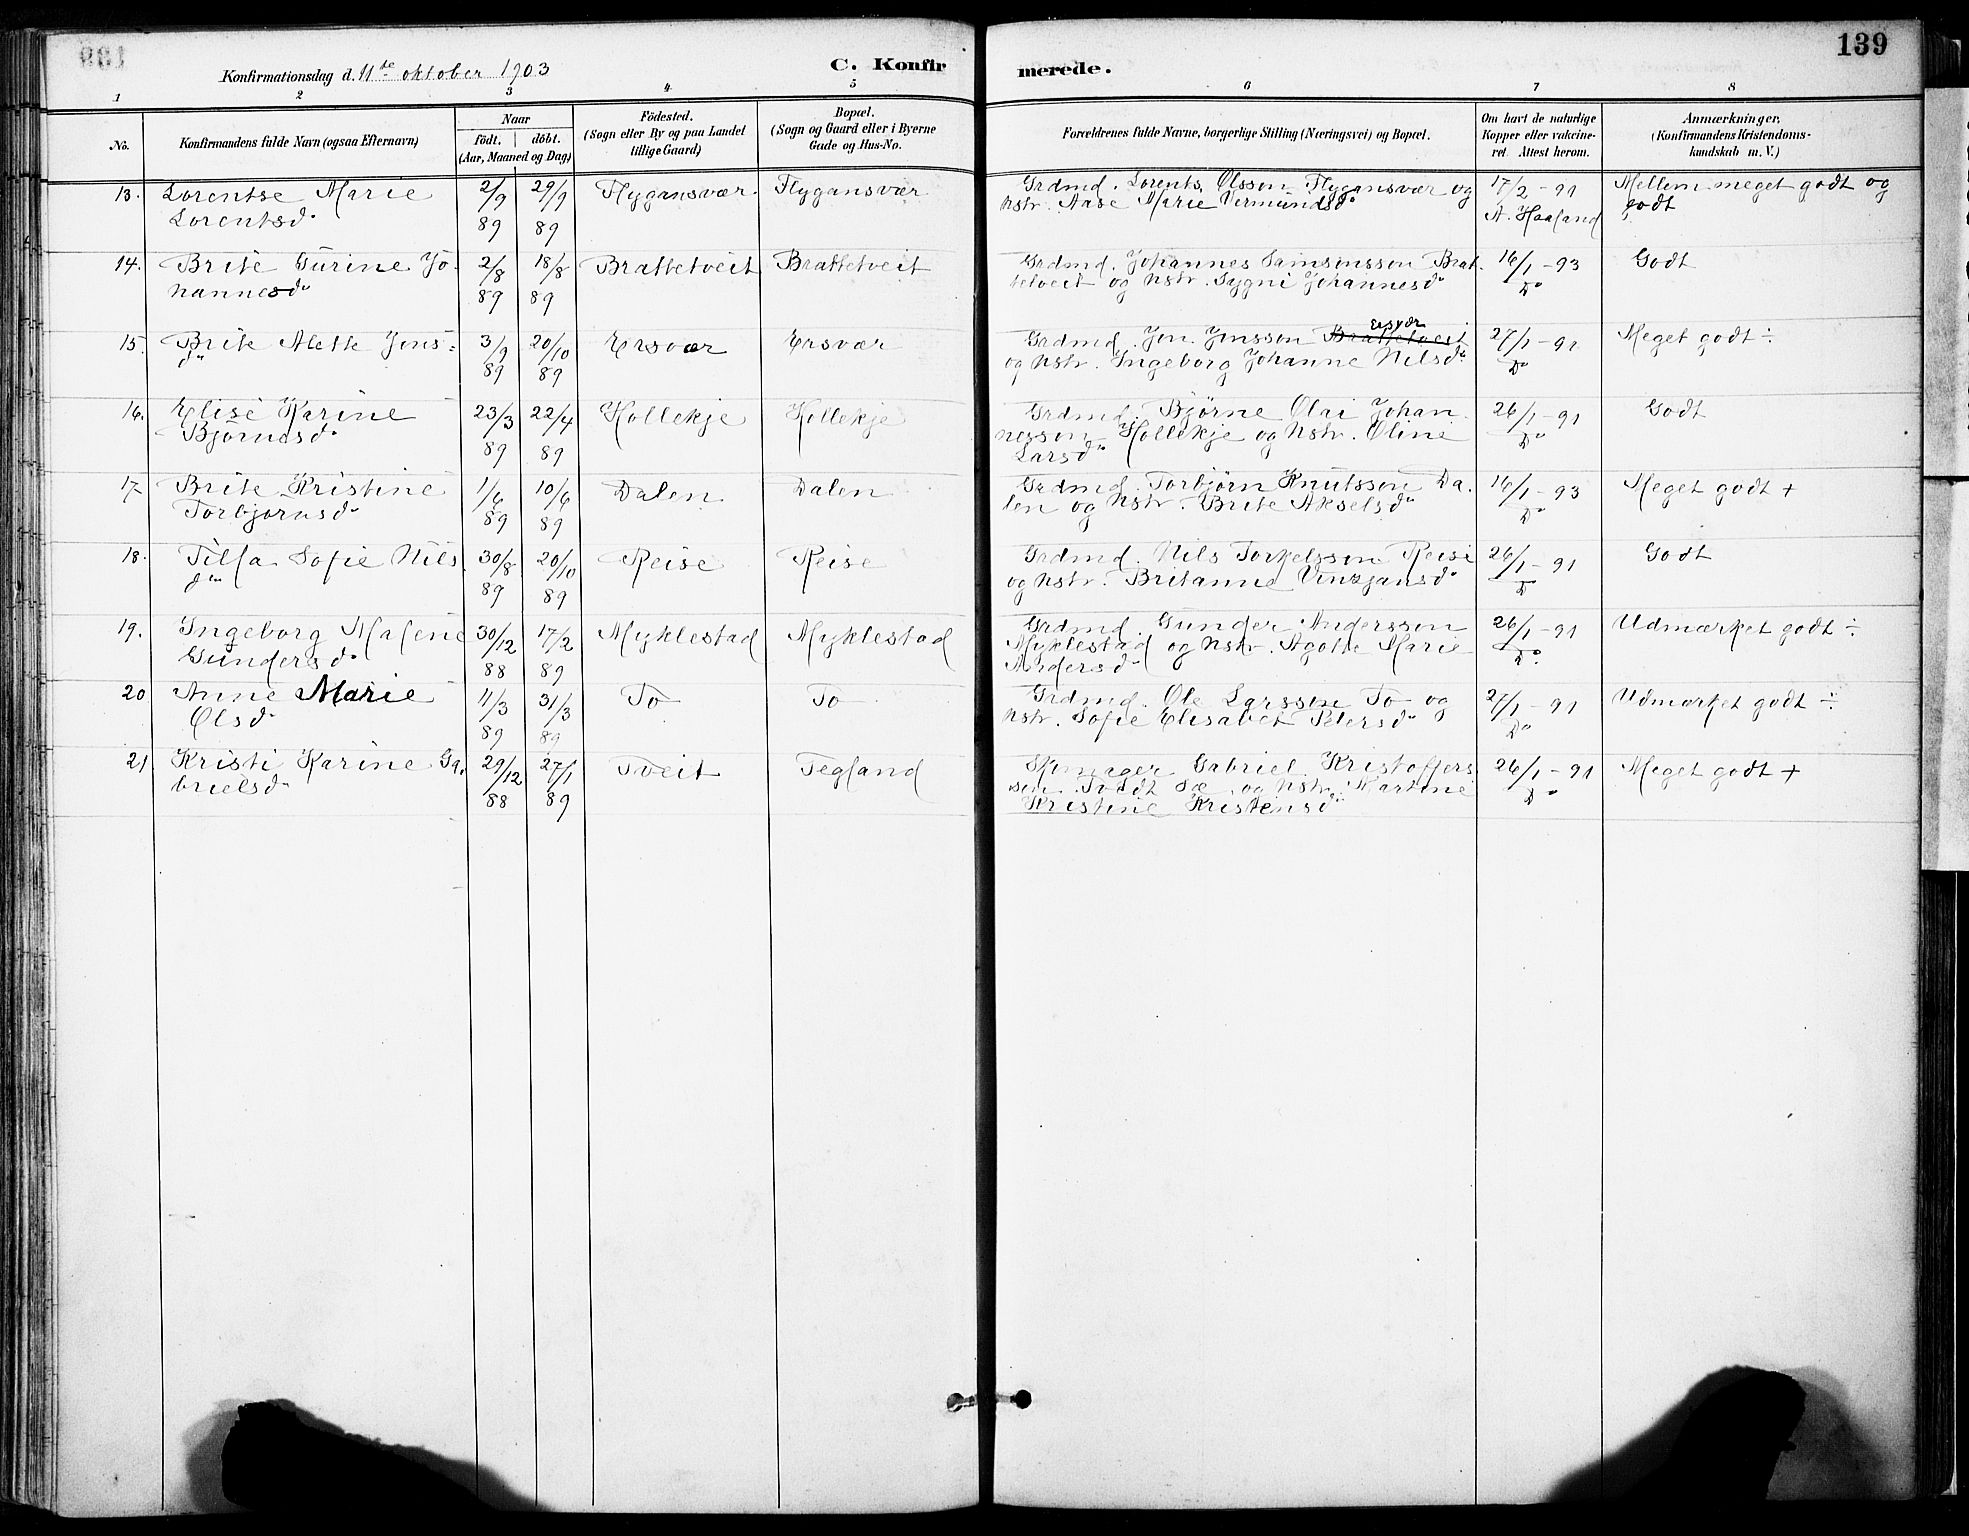 139
Konfirmationsdag d. 11te oktober 1903
C. Konfirmerede.
1 2 3 4 5 6 7 8
No.
Konfirmandens fulde Navn (ogsaa Efternavn)
Naar
født. | døbt.
(Aar, Maaned og Dag)
Födested.
(Sogn eller By og paa Landet
tillige Gaard)
Bopæl.
(Sogn og Gaard eller i Byerne
Gade og Hus-No.
Forældrenes fulde Navne, borgerlige Stilling (Næringsvei) og Bopæl.
Om havt de naturlige
Kopper eller vakcine-
ret. Attest herom.
Anmærkninger,
(Konfirmandens Kristendoms-
kundskab m. V.)
13. Lorentse Marie 2/9 29/9 Flygansvær Flygansvær Grdmd. Lorents Olsson Flygansvær og 17/2 - 91 Mellem meget godt og
Lorentsd. 89 89 hstr. Aase Marie Vermundsd. A. Haaland godt
14. Brite Turine Jo- 2/8 18/8 Brattetveit Brattetveit Grdmd. Johannes Samsonsson Brat- 16/1 - 93 Godt
hannesd. 89 89 tetveit og hstr. Sygni Johannesd. Do
15. Brite Alette Jons- 3/9 20/10 Ersvær Ersvær Grdmd. Jon Jonsson Brattetveit Ersvær 27/1 - 91 Meget godt ÷
d. 89 89 og hstr. Ingeborg Johanne Nilsd. Do
16. Elise Karine 23/3 22/4 Hollekje Hollekje Grdmd. Bjørne Olai Johan- 26/1 - 91 Godt
Bjørnesd. 89 89 nesson Hollekje og hstr. Oline Do
Larsd.
17 Brite Kristine 1/6 10/6 Dalen Dalen Grdmd. Torbjørn Knutsson Da- 16/1 - 93 Meget godt +
Torbjørnsd. 89 89 len og hstr. Brite Akselsd. Do
18. Tilla Sofie Nils 30/8 20/10 Reise Reise Grdmd. Nils Torkelsson Reise 26/1 - 91 Godt
d. 89 89 og hstr. Britanne Vinzjansd. Do
19. Ingeborg Malene 30/12 17/2 Myklestad Myklestad Grdmd. Gunder Andersson 26/1 - 91 Udmærket godt ÷
Gundersd. 88 89 Myklestad og hstr. Agotte Marie Do
Andersd.
20 Anne Marie 11/3 31/3 To To Grdmd. Ole Larsson To og 27/1 - 91 Udmærket godt ÷
Olsd. 89 89 hstr. Sofie Elisabet Petersd. Do
21 Kristi Karine Ga- 29/12 27/1 Tveit Tegland Skomager Gabriel Kristoffers- 26/1 - 91 Meget godt +
brielsd. 88 89 sen og hstr. Martine Do
Kristine Kristensd.